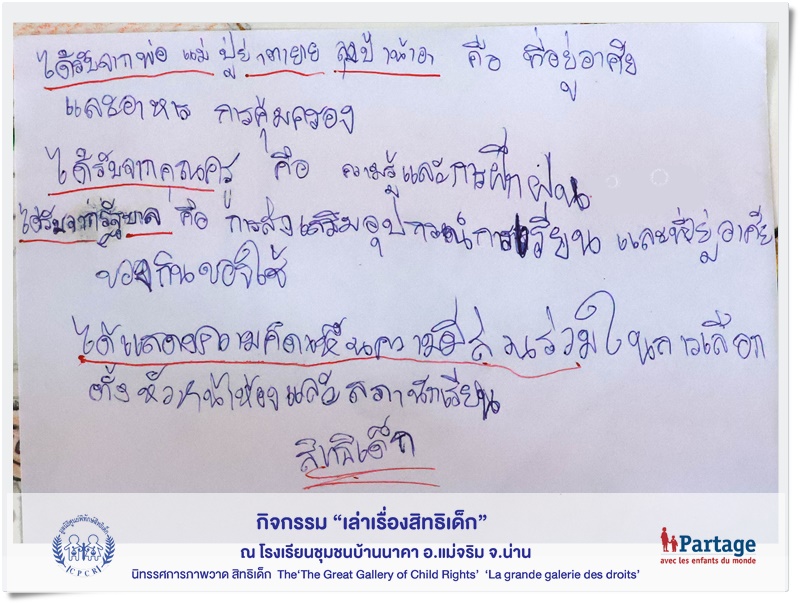 ได้รับจากพ่อ แม่ ปู่ย่าตายาย ลุงป้าน้าอา คือ ที่อยู่อาศัย
และอาหาร การคุ้มครอง
ได้รับจากคุณครู คือ ความรู้และการฝึกฝน
ได้รับจากรัฐบาล คือ การส่งเสริมอุปกรณ์การเรียน และที่อยู่อาศัย
ของกินของใช้
ได้แสดงความคิดเห็นความมีส่วนร่วมในการเลือก
ตั้งหัวหน้าห้องและสภานักเรียน
สิทธิเด็ก
มูลนิธิศูนย์พิทักษ์สิทธิเด็ก
C P C R
กิจกรรม “เล่าเรื่องสิทธิเด็ก”
ณ โรงเรียนชุมชนบ้านนาคา อ.แม่จริม จ.น่าน
นิทรรศการภาพวาด สิทธิเด็ก The‘The Great Gallery of Child Rights’ ‘La grande galerie des droits’
Partage
avec les enfants du monde